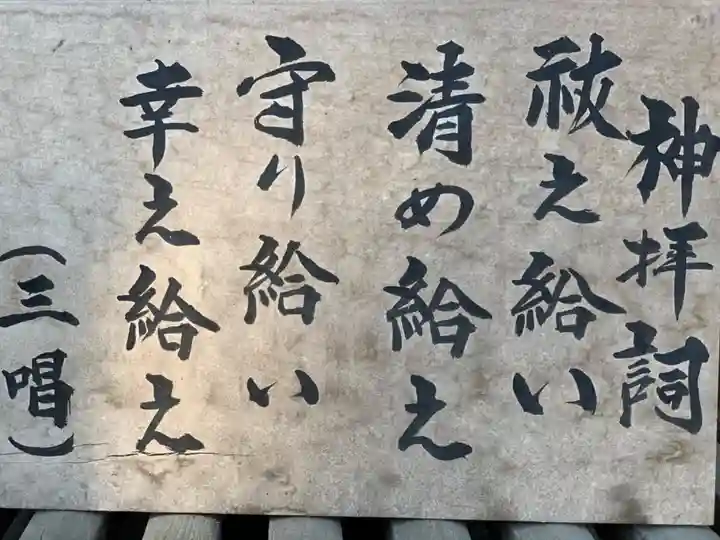 神拝詞
祓え給い
清め給え
守り給い
幸え給え
(三唱)